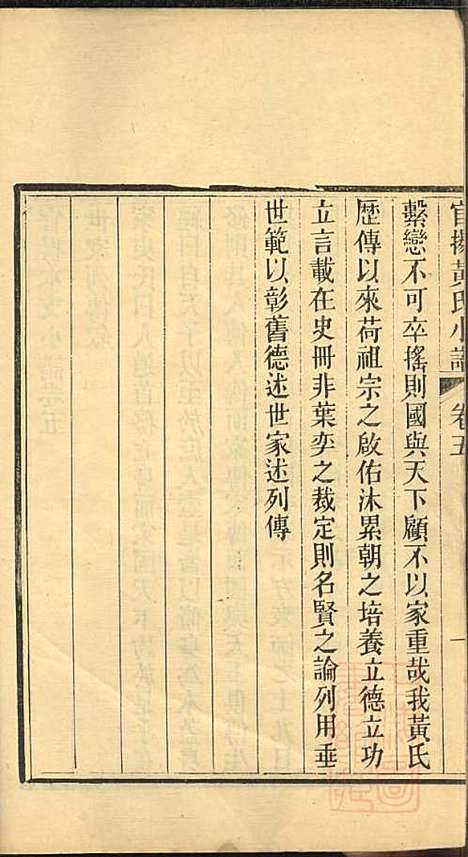 官揚黃氏小譜 卷五 一
繫戀不可卒搖則國與天下顧不以家重哉我黃氏
歷傳以來荷祖宗之啟佑沐累朝之培養立德立功
立言載在史冊非葉奕之裁定則名賢之論列用垂
世範以彰舊德述世家述列傳